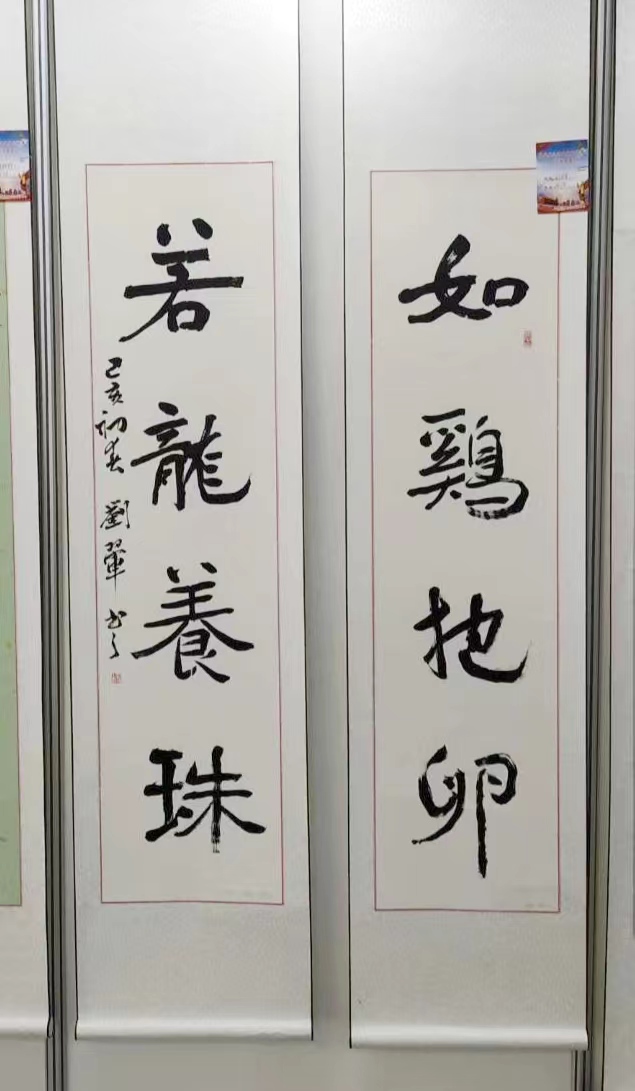 如鷄抱卵
若龍養珠
己亥初春 劉翠 书之